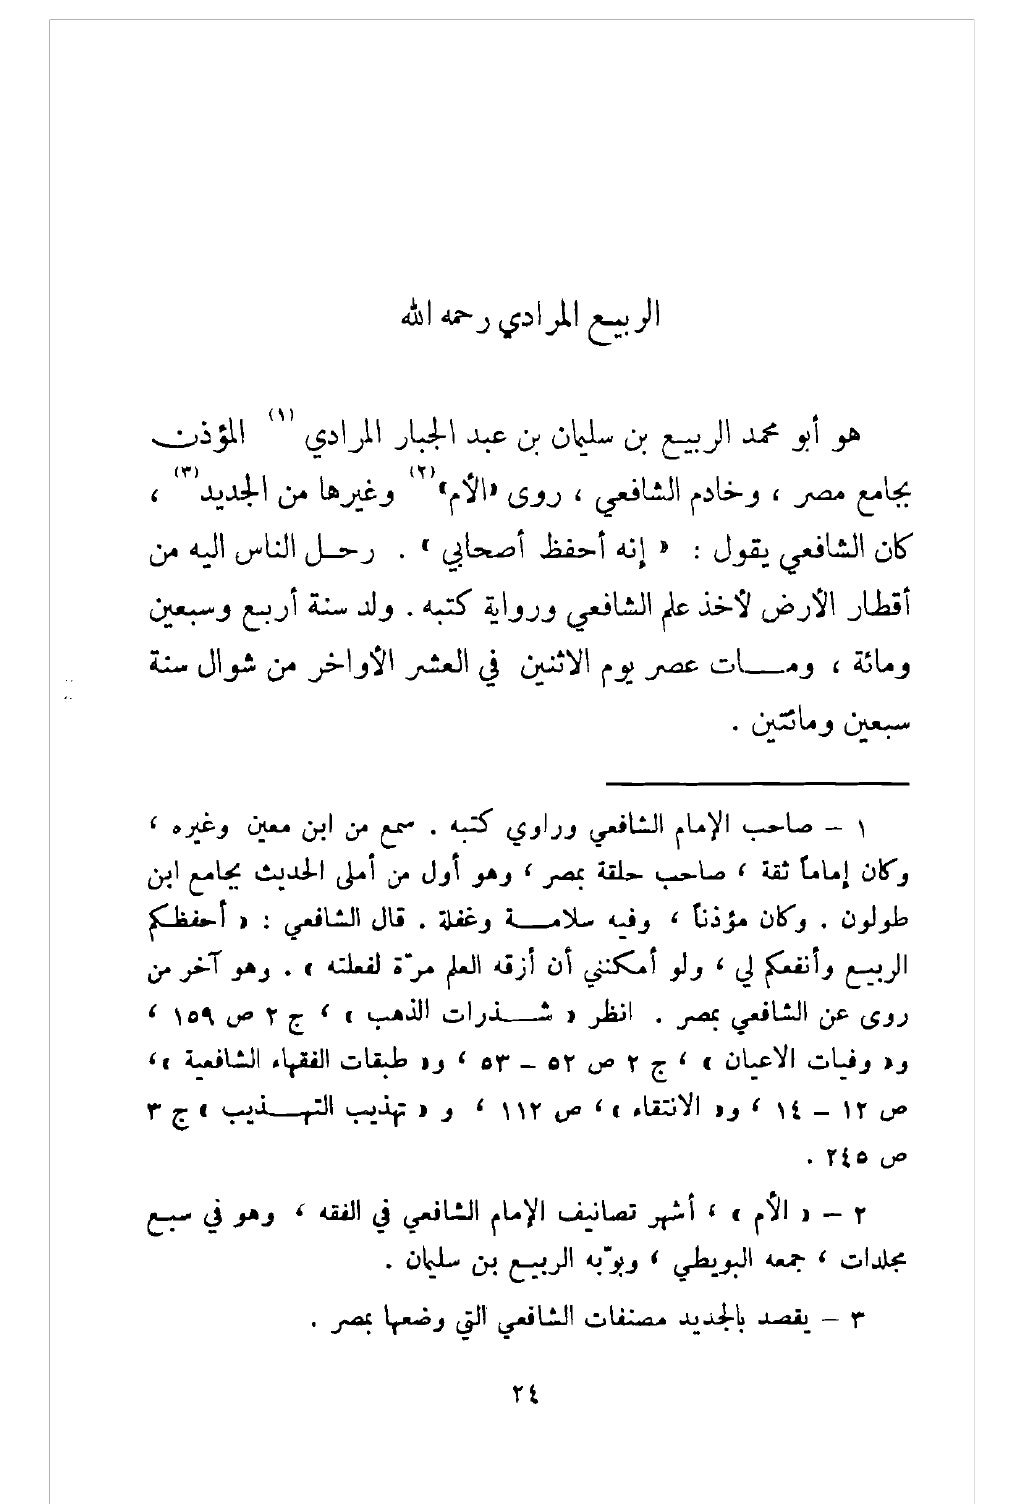 الربيع المرادي رحمه الله
هو أبو محمد الربيع بن سليمان بن عبد الجبار المرادي (١) المؤذن
بجامع مصر ، وخادم الشافعي ، روى «الأم»(٢) وغيرها من الجديد(٣) ،
كان الشافعي يقول : « إنه أحفظ أصحابي » . رحل الناس اليه من
أقطار الأرض لأخذ علم الشافعي ورواية كتبه . ولد سنة أربع وسبعين
ومائة ، ومات عصر يوم الاثنين في العشر الأواخر من شوال سنة
سبعين ومائتين .
١ – صاحب الإمام الشافعي وراوي كتبه . سمع من ابن معين وغيره ،
وكان إماماً ثقة ، صاحب حلقة بمصر ، وهو أول من أملى الحديث بجامع ابن
طولون . وكان مؤذناً ، وفيه سلامة وغفلة . قال الشافعي : « أحفظكم
الربيع وأنفعكم لي ، ولو أمكنني أن أزقه العلم مرّة لفعلته » . وهو آخر من
روى عن الشافعي بمصر . انظر « شذرات الذهب » ، ج ٢ ص ١٥٩ ،
و« وفيات الاعيان » ، ج ٢ ص ٥٢ – ٥٣ ، و« طبقات الفقهاء الشافعية »،
ص ١٢ – ١٤ ، و« الانتقاء »، ص ١١٢ ، و « تهذيب التهذيب » ج ٣
ص ٢٤٥ .
٢ – « الأم » ، أشهر تصانيف الإمام الشافعي في الفقه ، وهو في سبع
مجلدات ، جمعه البويطي ، وبوّبه الربيع بن سليمان .
٣ – يقصد بالجديد مصنفات الشافعي التي وضعها بمصر .
٢٤